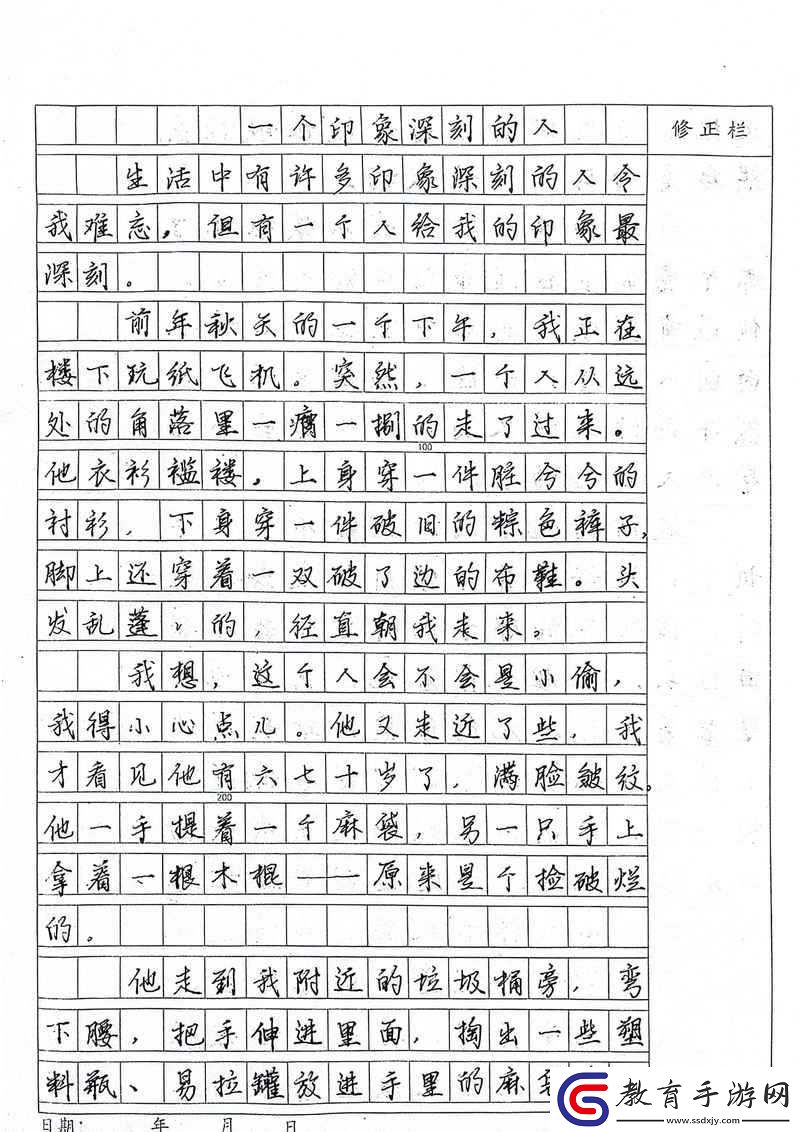 一个印象深刻的人
修正栏
生活中有许多印象深刻的人令
我难忘，但有一个人给我的印象最
深刻。
前年秋天的一个下午，我正在
楼下玩纸飞机。突然，一个人从远
处的角落里一瘸一捌的走了过来。
100
他衣衫褴褛。上身穿一件脏兮兮的
衬衫，下身穿一件破旧的粽色裤子，
脚上还穿着一双破了边的布鞋。头
发乱蓬、的，径直朝我走来。
我想，这个人会不会是小偷，
我得小心点儿。他又走近了些，我
才看见他有六七十岁了，满脸皱纹。
200
他一手提着一个麻袋，另一只手上
拿着一根木棍——原来是个捡破烂
的。
他走到我附近的垃圾桶旁，弯
下腰、把手伸进里面，掏出一些塑
料瓶、易拉罐放进手里的麻
日期： 年 月 日
教育手游网
www.ssdxjy.com